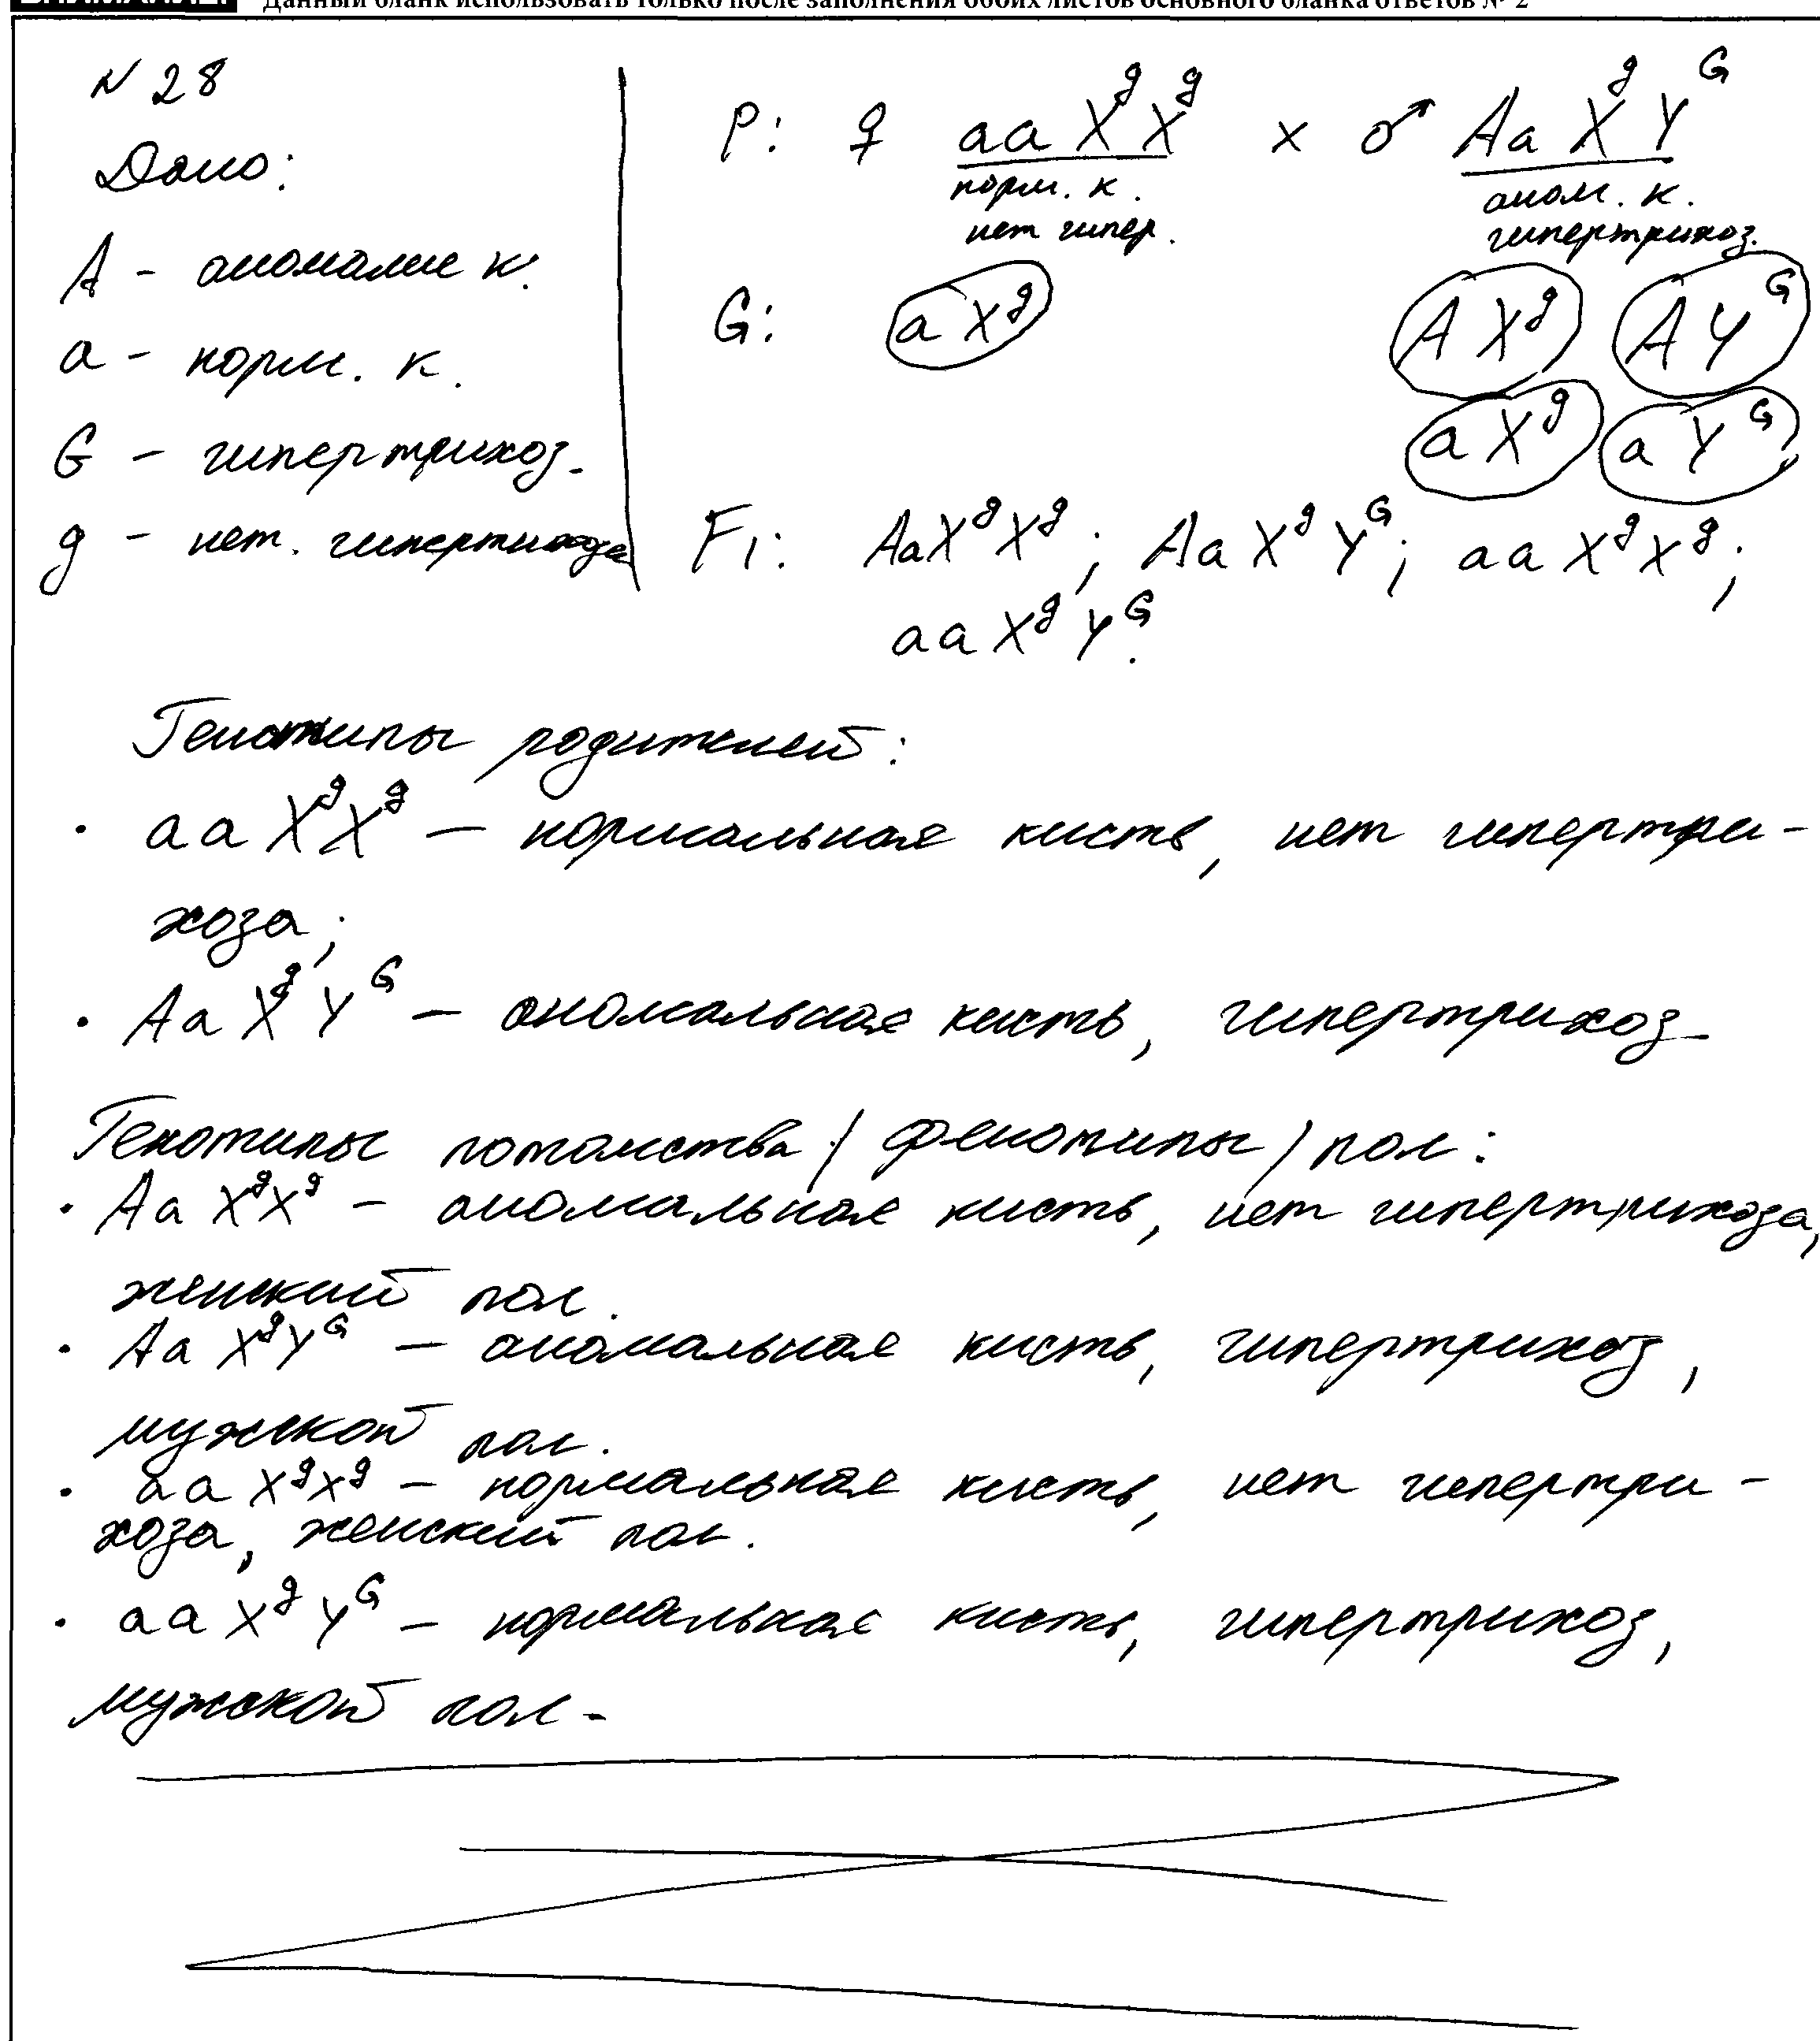 Данный бланк использовать только после заполнения обоих листов основного бланка ответов № 2
N 28
Дано:
A - аномалие к.
a - норм. к.
G - гипертрихоз.
g - нет. гипертихоза
P: ♀ aa X^g X^g x ♂ Aa X^g Y^G
норм. к. аном. к.
нет гипер. гипертрихоз.
G: a X^g A X^g A Y^G
a X^g a Y^G
F1: Aa X^g X^g ; Aa X^g Y^G ; aa X^g X^g ;
aa X^g Y^G.
Генотипы родителей:
· aa X^g X^g — нормальная кисть, нет гипертри-
хоза;
· Aa X^g Y^G — аномальная кисть, гипертрихоз.
Генотипы потомства / фенотипы / пол:
· Aa X^g X^g — аномальная кисть, нет гипертрихоза,
женский пол.
· Aa X^g Y^G — аномальная кисть, гипертрихоз,
мужской пол.
· aa X^g X^g — нормальная кисть, нет гипертри-
хоза, женский пол.
· aa X^g Y^G — нормальная кисть, гипертрихоз,
мужской пол.